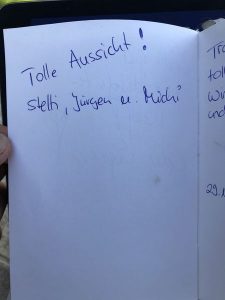 Tolle Aussicht!
Steffi, Jürgen u. Michi
Tro
toll
Wir
und
29.1